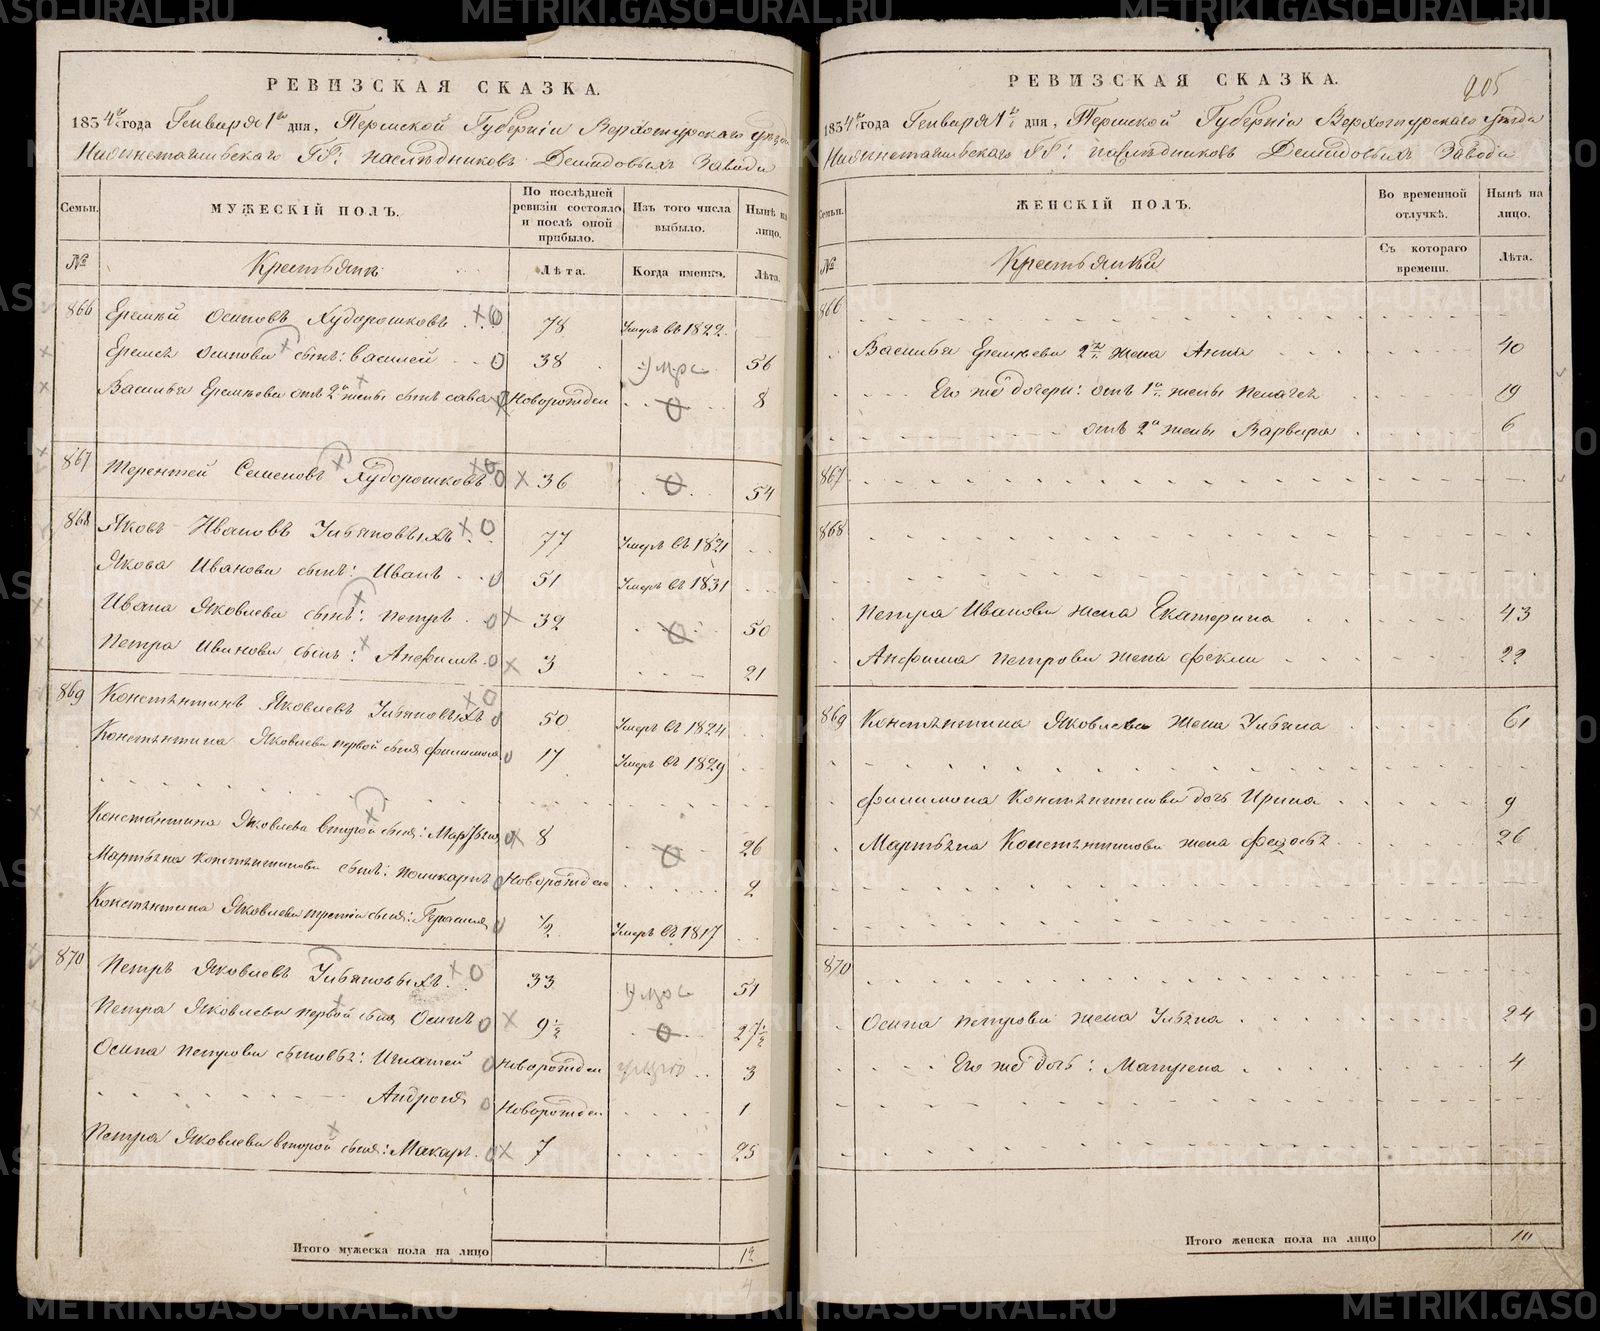 РЕВИЗСКАЯ СКАЗКА.
1834 года Генваря 1го дня, Пермской Губерніи Верхотурскаго уѣзда
Нижнетагильскаго ГГ: наслѣдниковъ Демидовыхъ завода
Семьи. МУЖЕСКІЙ ПОЛЪ. По послѣдней ревизіи состояло и послѣ оной прибыло. Изъ того числа выбыло. Нынѣ на лицо.
№ Крестьянъ Лѣта. Когда именно. Лѣта.
866 Еремѣй Осиповъ Худорошковъ 78 Умеръ въ 1822
Еремѣя Осипова сынъ: Василей 38 56
Василья Еремѣева отъ 2й жены сынъ Сава Новорожден 8
867 Терентей Семеновъ Худорошковъ 36 54
868 Яковъ Ивановъ Ульяновыхъ 77 Умеръ въ 1821
Якова Иванова сынъ: Иванъ 51 Умеръ въ 1831
Ивана Яковлева сынъ: Петръ 32 50
Петра Иванова сынъ: Анфимъ 3 21
869 Константинъ Яковлевъ Ульяновыхъ 50 Умеръ въ 1824
Константина Яковлева первой сынъ Филимонъ 17 Умеръ въ 1829
Константина Яковлева второй сынъ: Мартьянъ 8 26
Мартьяна Константинова сынъ: Поликарпъ Новорожден 2
Константина Яковлева третій сынъ: Герасимъ ½ Умеръ въ 1817
870 Петръ Яковлевъ Ульяновыхъ 33 51
Петра Яковлева первой сынъ Осипъ 9½ 27½
Осипа Петрова сыновья: Игнатей Новорожден 3
Андроній Новорожден 1
Петра Яковлева второй сынъ: Макаръ 7 25
Итого мужеска пола на лицо 12
РЕВИЗСКАЯ СКАЗКА.
205
1834 года Генваря 1го дня, Пермской Губерніи Верхотурскаго уѣзда
Нижнетагильскаго ГГ: наслѣдниковъ Демидовыхъ завода
Семьи. ЖЕНСКІЙ ПОЛЪ. Во временной отлучкѣ. Нынѣ на лицо.
№ Крестьянки Съ котораго времени. Лѣта.
866
Василья Еремѣева 2я жена Анна 40
Его же дочери: отъ 1й жены Пелагея 19
отъ 2й жены Варвара 6
867
868
Петра Иванова жена Екатерина 43
Анфима Петрова жена Фекла 22
869 Константина Яковлева жена Ульяна 61
Филимона Константинова дочь Ирина 9
Мартьяна Константинова жена Федосья 26
870
Осипа Петрова жена Ульяна 24
Его же дочь: Матрена 4
Итого женска пола на лицо 10
METRIKI.GASO-URAL.RU